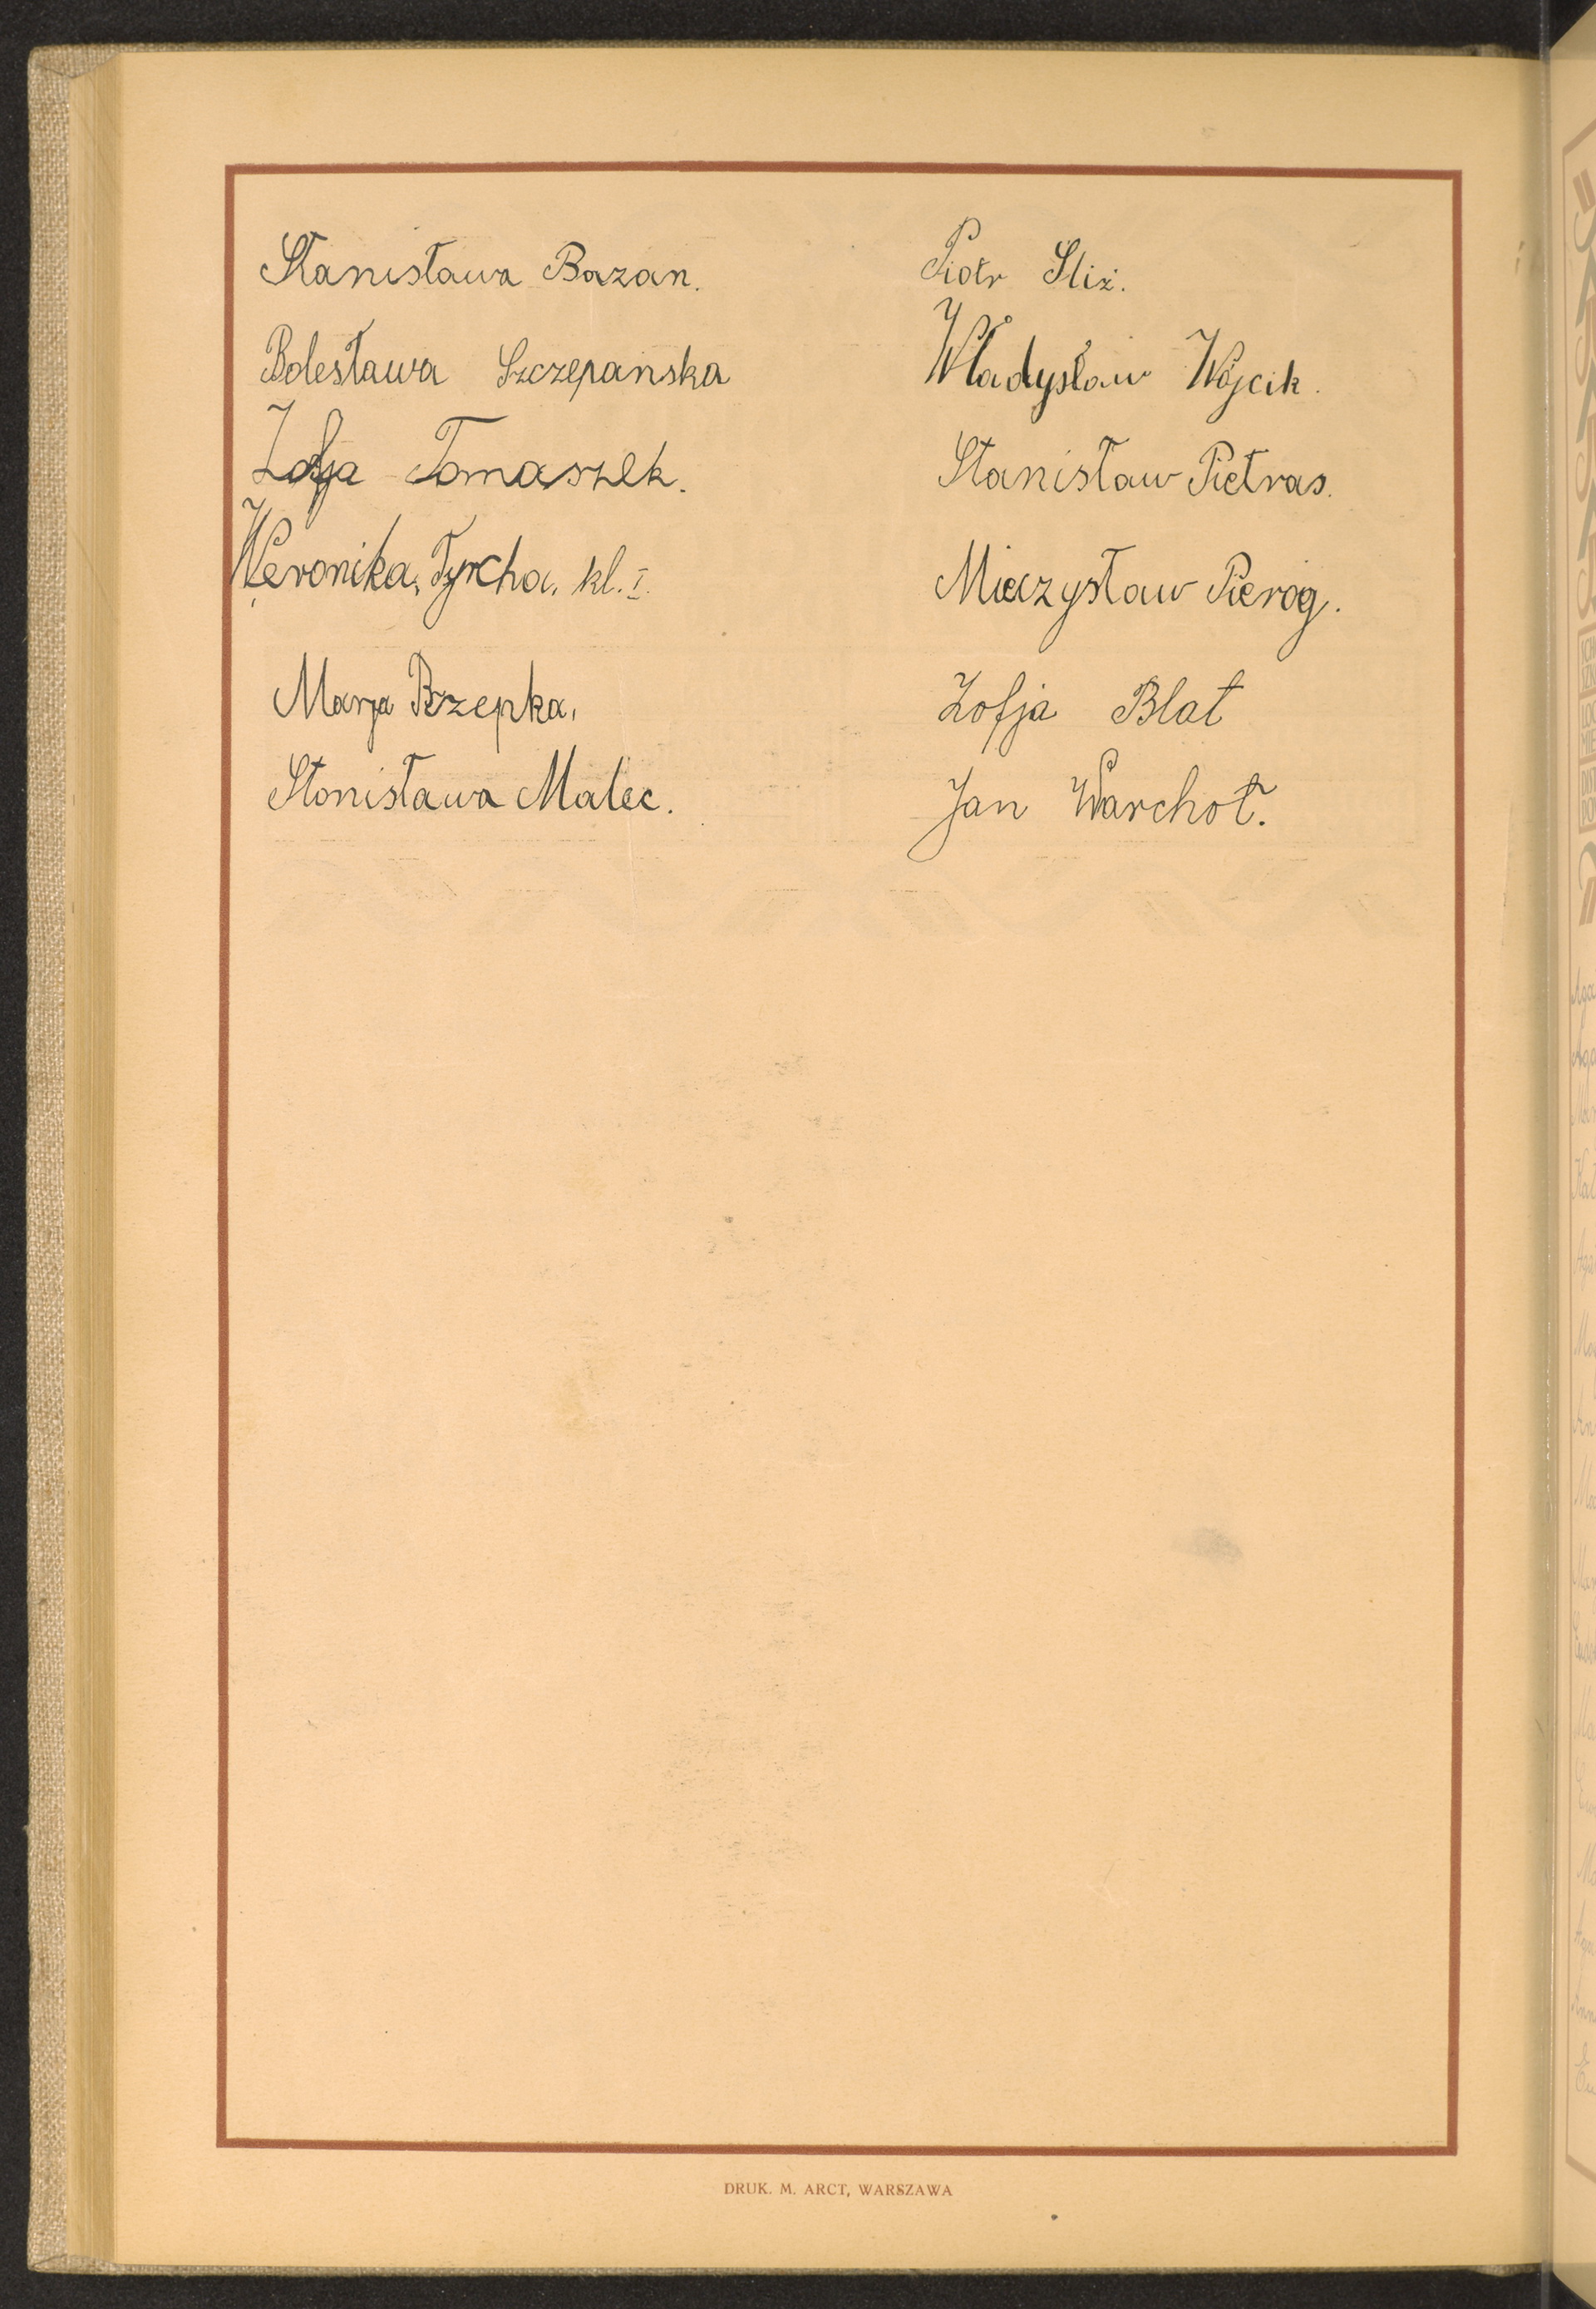 Stanisława Bazan.
Bolesława Szczepanska
Zofja Tomaszek.
Weronika, Tyrcha, kl. I.
Marja Rzepka,
Stanisława Malec.
Piotr Sliż.
Władysław Wójcik.
Stanisław Pietras.
Mieczysław Pieróg.
Zofja Blat
Jan Warchoł.
DRUK. M. ARCT, WARSZAWA